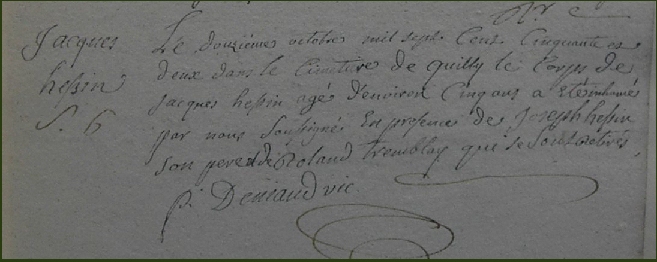 Jacques
hessin
S. 6
Le douzieme octobre mil sept Cent Cinquante et
deux dans le Cimetiere de quilly le Corps de
jacques hessin agé d'environ Cinq ans a été inhumé
par nous Soussigné En presence de Joseph hessin
son pere et de Roland tremblay qui se sont retirés,
p. Deniaud vic